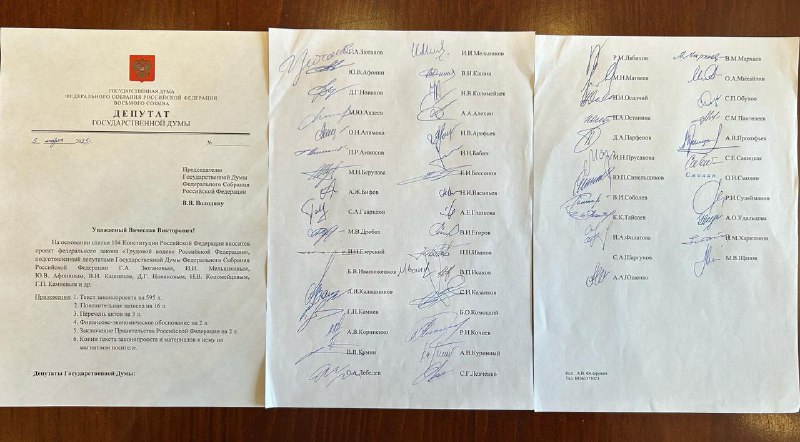 ГОСУДАРСТВЕННАЯ ДУМА
ФЕДЕРАЛЬНОГО СОБРАНИЯ РОССИЙСКОЙ ФЕДЕРАЦИИ
ВОСЬМОГО СОЗЫВА
ДЕПУТАТ
ГОСУДАРСТВЕННОЙ ДУМЫ
5 марта 2025г.
№
Председателю
Государственной Думы
Федерального Собрания
Российской Федерации
В.В. Володину
Уважаемый Вячеслав Викторович!
На основании статьи 104 Конституции Российской Федерации вносится
проект федерального закона «Трудовой кодекс Российской Федерации»,
подготовленный депутатами Государственной Думы Федерального Собрания
Российской Федерации Г.А. Зюгановым, И.И. Мельниковым,
Ю.В. Афониным, В.И. Кашиным, Д.Г. Новиковым, Н.В. Коломейцевым,
Г.П. Камневым и др.
Приложения: 1. Текст законопроекта на 595 л.
2. Пояснительная записка на 16 л.
3. Перечень актов на 3 л.
4. Финансово-экономическое обоснование на 2 л.
5. Заключение Правительства Российской Федерации на 2 л.
6. Копии текста законопроекта и материалов к нему на
магнитном носителе.
Депутаты Государственной Думы:
Г.А.Зюганов И.И.Мельников
Ю.В.Афонин В.И.Кашин
Д.Г.Новиков Н.В.Коломейцев
М.Ю.Авдеев А.А.Алехин
О.Н.Алимова Н.В.Арефьев
П.Р.Амбосов И.Н.Бабич
М.Н.Берулава Е.И.Бессонов
А.Ж.Бифов Н.И.Васильев
С.А.Гаврилов А.Е.Глазкова
М.В.Дробот В.И.Егоров
Н.И.Езерский П.Н.Иванов
Б.Р.Иванюженков В.П.Исаков
Л.И.Калашников С.И.Казанков
Г.П.Камнев Б.О.Комоцкий
А.В.Корниенко Р.И.Кочиев
В.В.Кумин А.В.Куринный
О.А.Лебедев С.Г.Левченко
Р.М.Лябихов В.М.Мархаев
М.Н.Матвеев О.А.Михайлов
Н.И.Осадчий С.П.Обухов
Н.А.Останина С.М.Пантелеев
Д.А.Парфенов А.В.Прокофьев
М.Н.Прусакова С.Е.Савицкая
Ю.П.Синельщиков Смолин О.Н.Смолин
В.И.Соболев Р.И.Сулейманов
К.К.Тайсаев А.О.Удальцова
И.А.Филатова М.М.Харитонов
С.А.Шаргунов М.В.Щапов
А.А.Ющенко